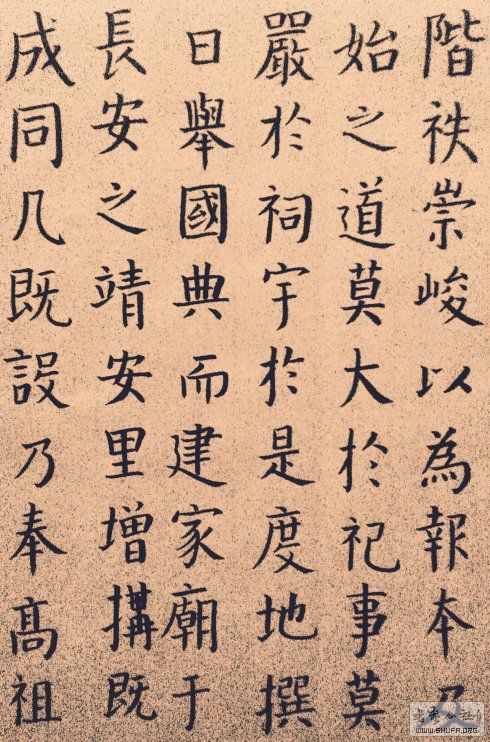 階袟崇峻以為報本
始之道莫大於祀事莫
嚴於祠宇於是度地撰
日舉國典而建家廟于
長安之靖安里增搆既
成同几既設乃奉高祖
WWW.SHUFA.ORG